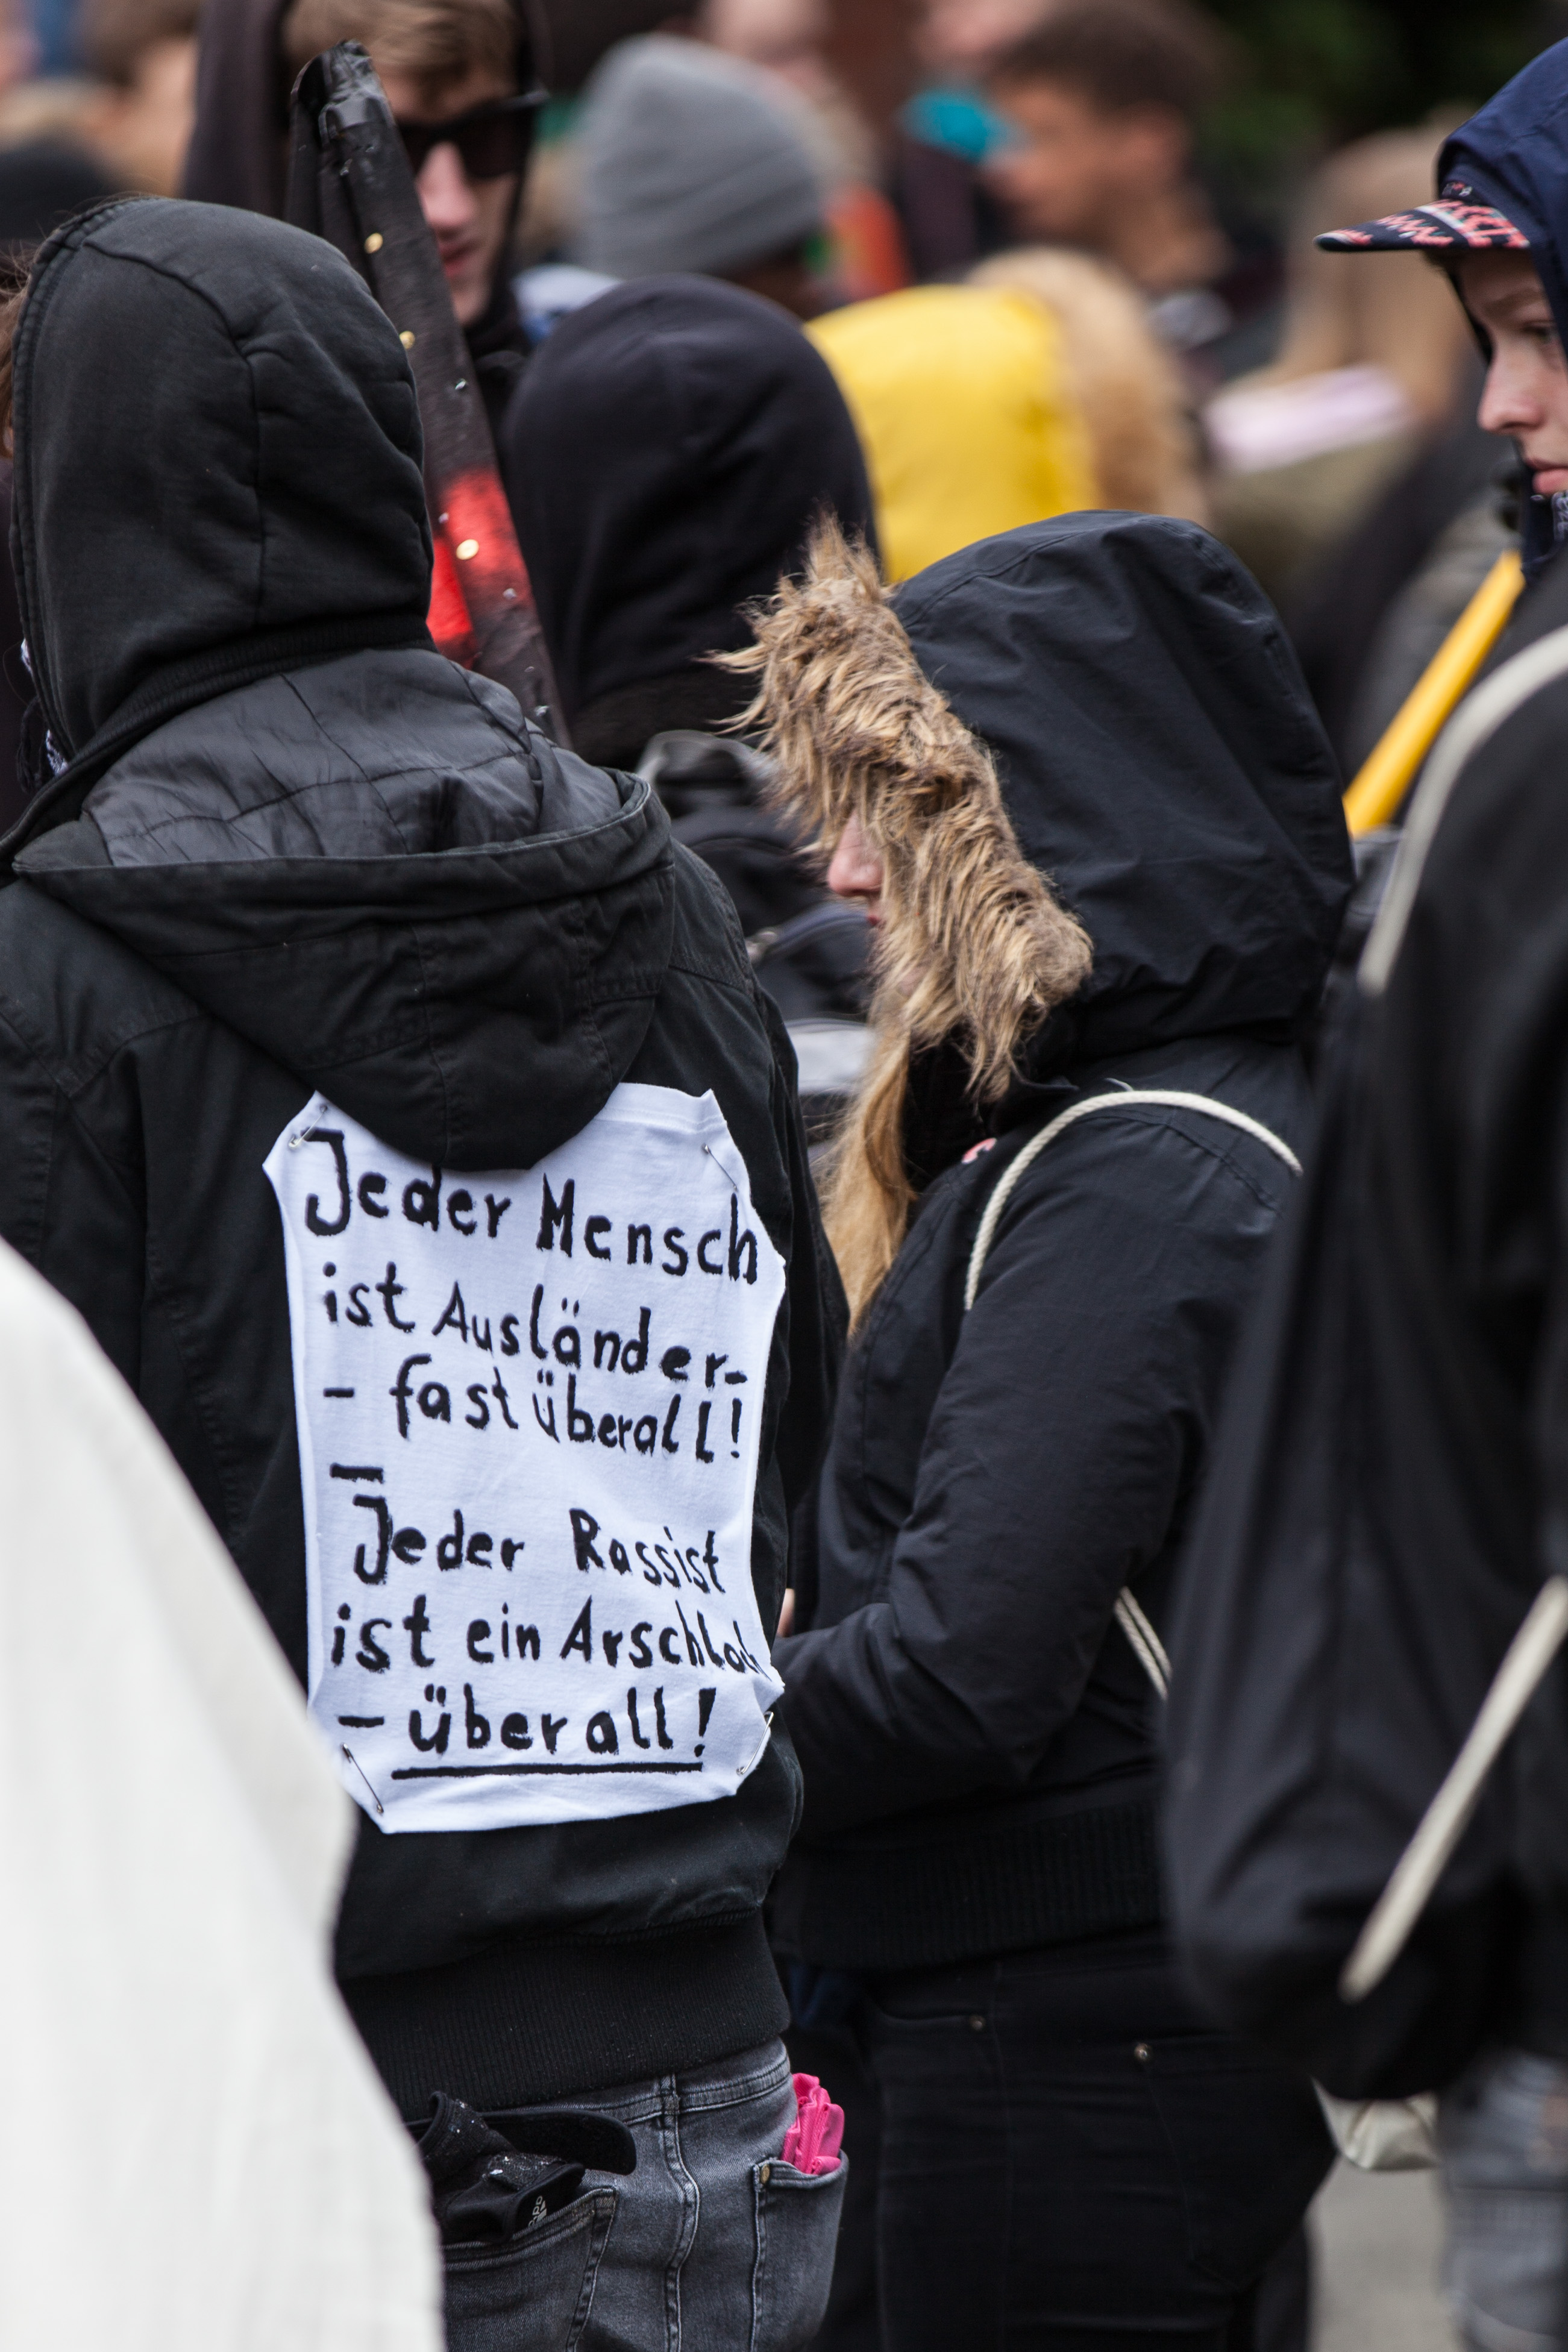 Jeder Mensch
ist Ausländer-
- fast überall!
—
Jeder Rassist
ist ein Arschloch
- überall!